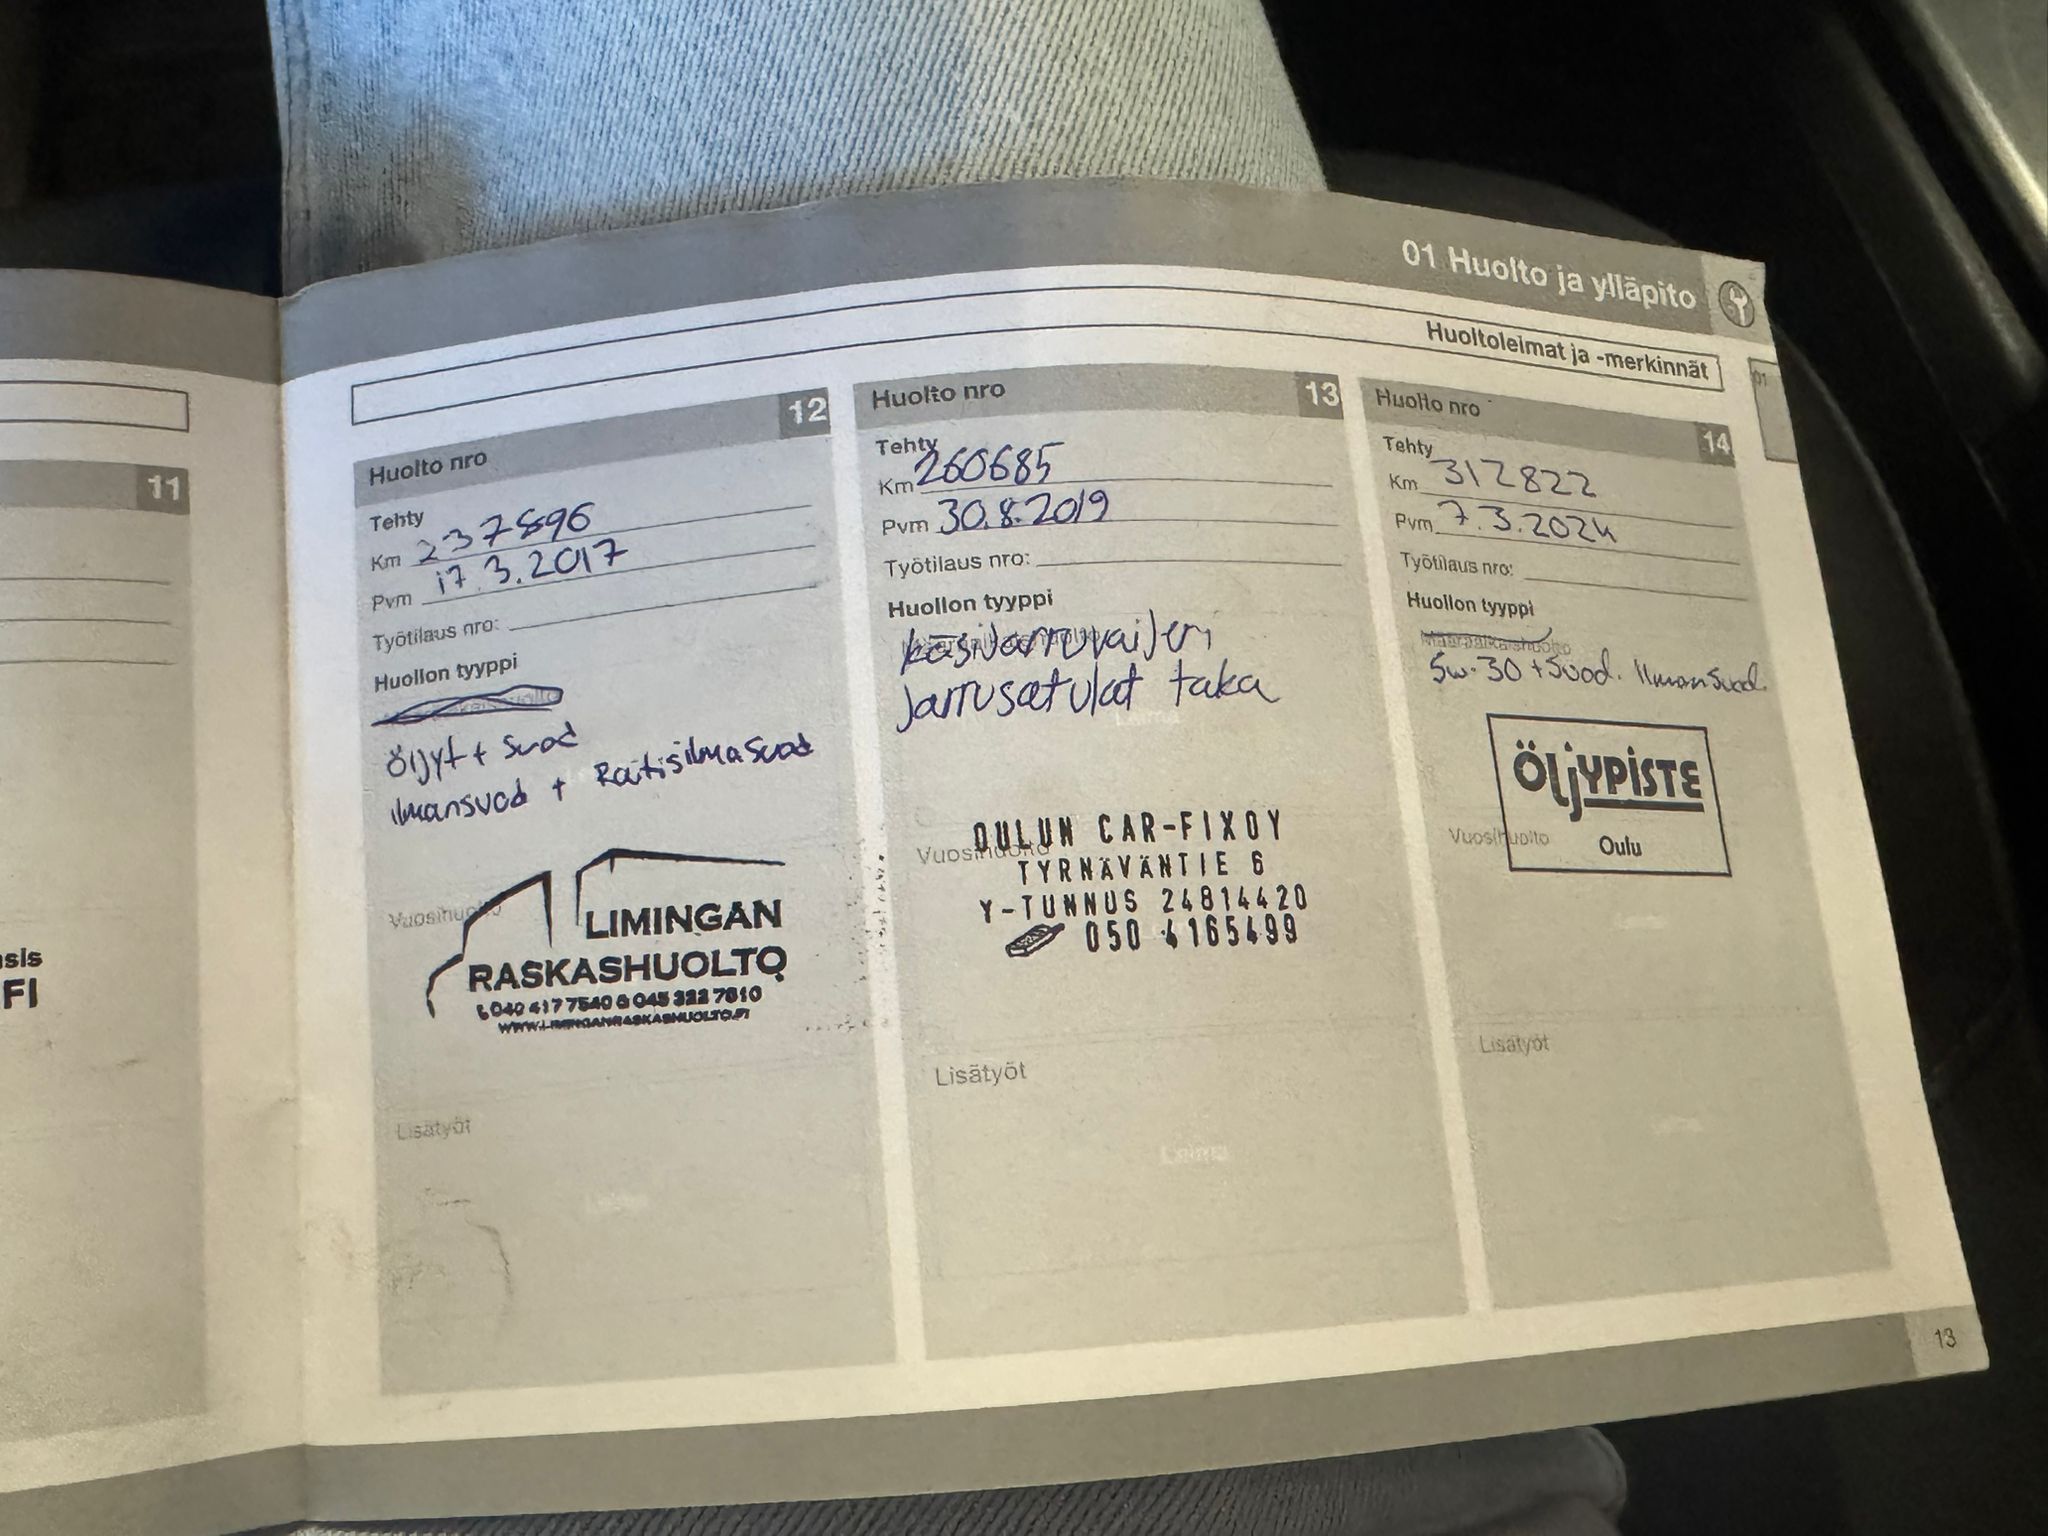 01 Huolto ja ylläpito
Huoltoleimat ja -merkinnät
01
11
sis
FI
Huolto nro 12
Tehty
Km 237896
Pvm 17.3.2017
Työtilaus nro:
Huollon tyyppi
Öljyt + suod
ilmansuod + Raitisilmasuod
Vuosihuolto
LIMINGAN
RASKASHUOLTO
040 417 7540 & 045 322 7810
WWW.LIMINGANRASKASHUOLTO.FI
Lisätyöt
Huolto nro 13
Tehty
Km 260685
Pvm 30.8.2019
Työtilaus nro:
Huollon tyyppi
käsijarruvaijeri
Jarrusatulat taka
Leima
Vuosihuolto
OULUN CAR-FIXOY
TYRNÄVÄNTIE 6
Y-TUNNUS 24814420
050 4165499
Lisätyöt
Leima
Huolto nro 14
Tehty
Km 312822
Pvm 7.3.2024
Työtilaus nro:
Huollon tyyppi
Määräaikaishuolto
5w-30 + Suod. Ilmansuod.
ÖLJYPISTE
Oulu
Vuosihuolto
Lisätyöt
13